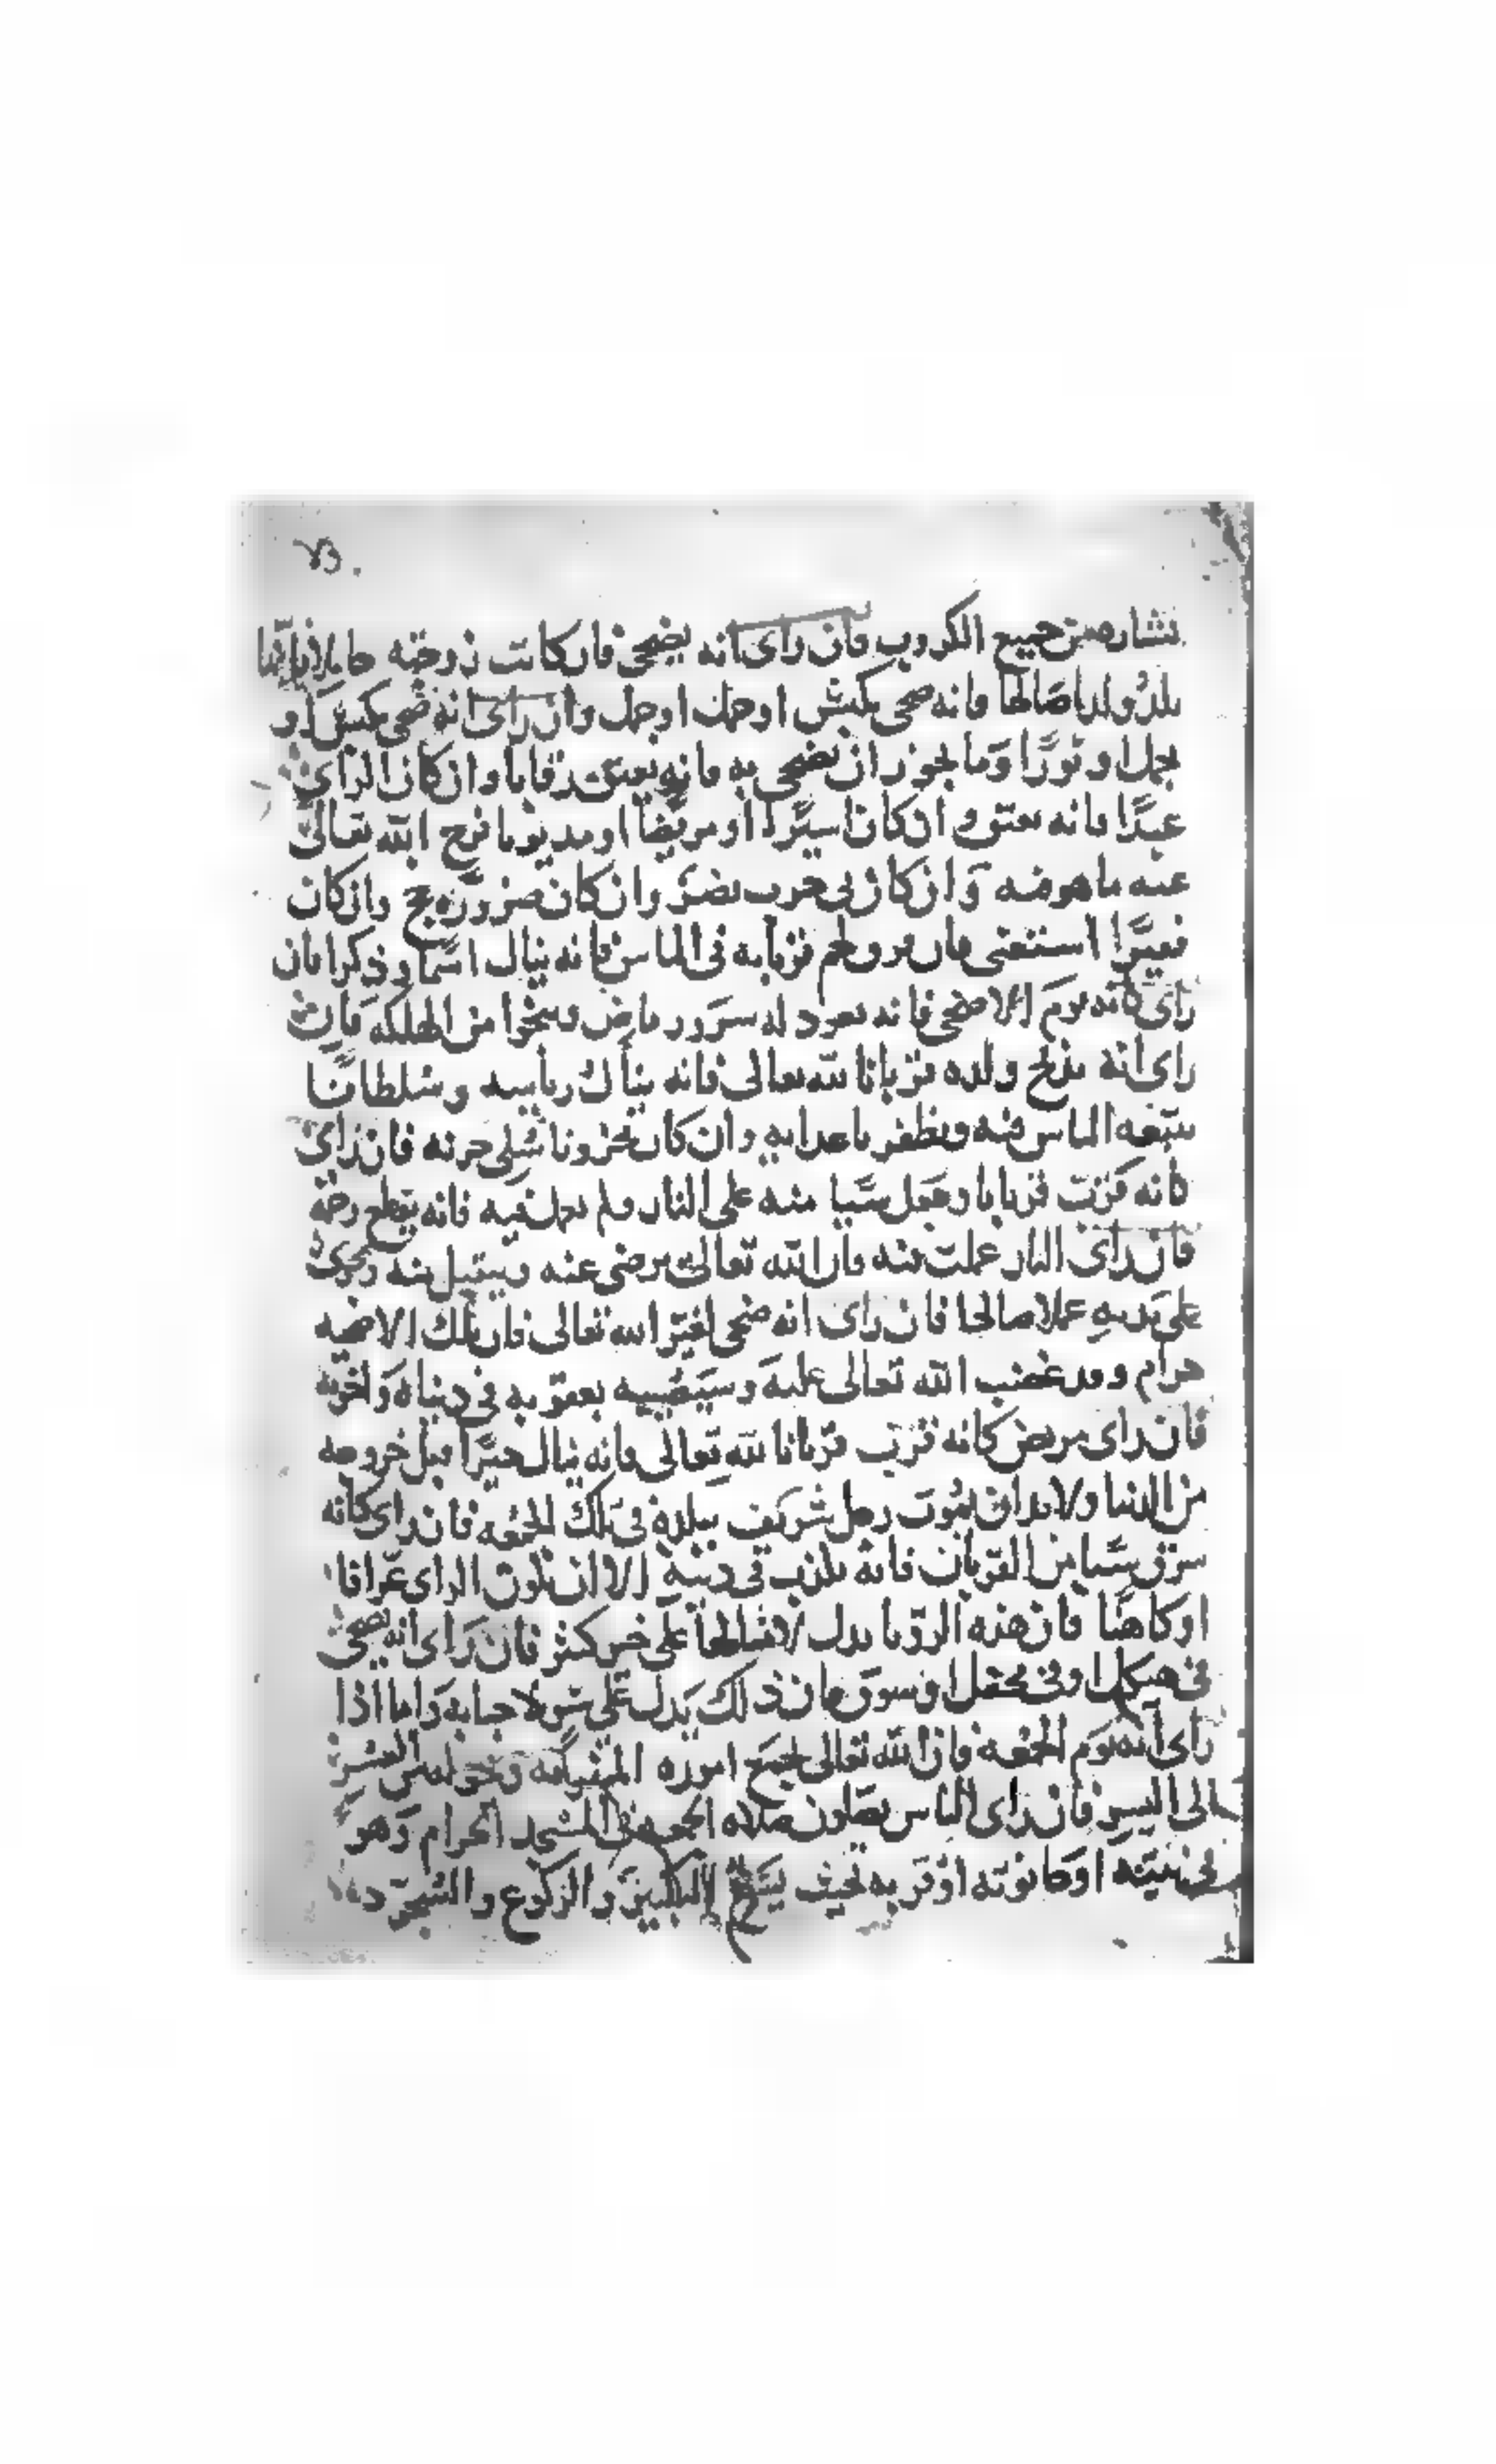 بشاره من جميع الكروب فان راى انه يضحى فان كانت زوجته حاملا فانها
تلد ولدا صالحا فانه ضحى بكبش او حمل او جمل وان راى انه ضحى بكبش او
بجمل او ثورا وما يجوز ان يضحى به فانه يعتق رقابا وان كان الراى
عبدا فانه يعتق وان كان اسيرا او مريضا او مديونا فرج الله تعالى
عنه ما هو فيه وان كان فى حرب نصر وان كان ضروره حج وان كان
فقيرا استغنى فان فرق لحم قربانه فى الناس فانه ينال اسما وذكرا فان
راى كانه يوم الاضحى فانه يعود له سرور ماض وينجوا من الهلكه فان
راى انه يذبح ولده قربانا لله تعالى فانه ينال رياسه وسلطانا
يتبعه الناس فيه ويظفر باعدايه وان كان محزونا سلى حزنه فان راى
كانه قرب قربانا وجعل شيا منه على النار ولم تعمل فيه فانه يقطع رحمه
فان راى النار عملت منه فان الله تعالى يرضى عنه ويتقبل منه ويجرى
على يديه عملا صالحا فان راى انه ضحى لغير الله تعالى فان تلك الاضحيه
حرام وقد غضب الله تعالى عليه وسيصيبه بعقوبه فى دنياه واخرته
فان راى مريض كانه قرب قربانا لله تعالى فانه ينال خيرا قبل خروجه
من الدنيا ولا بد ان يموت رجل شريف ببلده فى تلك الجمعه فان راى كانه
سرق شيا من القربان فانه يكذب فى دينه الا ان يكون الراى عرافا
او كاهنا فان هذه الرويا تدل لا شالها على خير كثير فان راى انه يضحى
فى هيكل او فى محفل او سوق فان ذلك يدل على تولا جبايه واما اذا
راى انه يوم الجمعه فان الله تعالى يجمع اموره وتحوله من العسر
الى اليسر فان راى الناس يصلون صلاه الجمعه فى المسجد الحرام وهو
فى بيته او حانوته او قريه بحيث يسمع التكبير والركوع والسجود